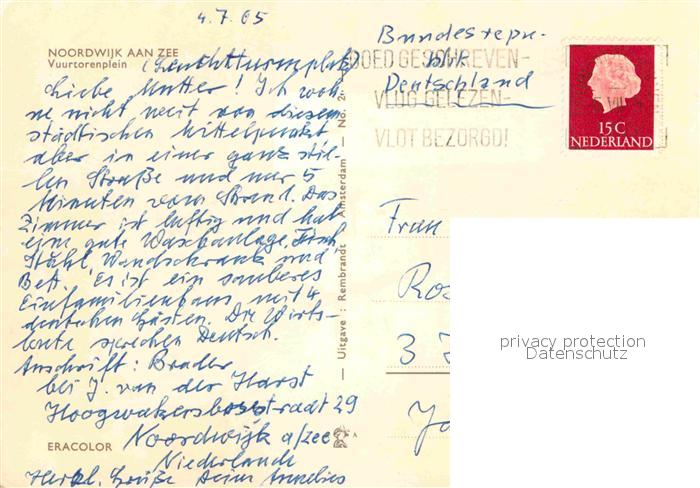 4.7.65
NOORDWIJK AAN ZEE
Vuurtorenplein (Leuchtturmplatz
Liebe Mutter! Ich woh-
ne nicht weit von diesem
städtischen Mittelpunkt
aber in einer ganz stil-
len Straße und nur 5
Minuten vom Strand. Das
Zimmer ist luftig und hat
eine gute Waschanlage, Tisch,
Stuhl, Wandschrank und
Bett. Es ist ein sauberes
Einfamilienhaus mit 4
deutschen Gästen. Die Wirts-
leute sprechen Deutsch.
Anschrift: Brader
bei J. van der Harst
Hoogwakersbosstraat 29
Noordwijk a/zee
Niederlande
Herzl. Grüße Deine Annelies
ERACOLOR
— Uitgave: Rembrandt — Amsterdam — No. 2
Bundesrepu-
blik
Deutschland
GOED GESCHREVEN-
VLUG GELEZEN-
VLOT BEZORGD!
15 C
NEDERLAND
Frau
3
privacy protection
Datenschutz